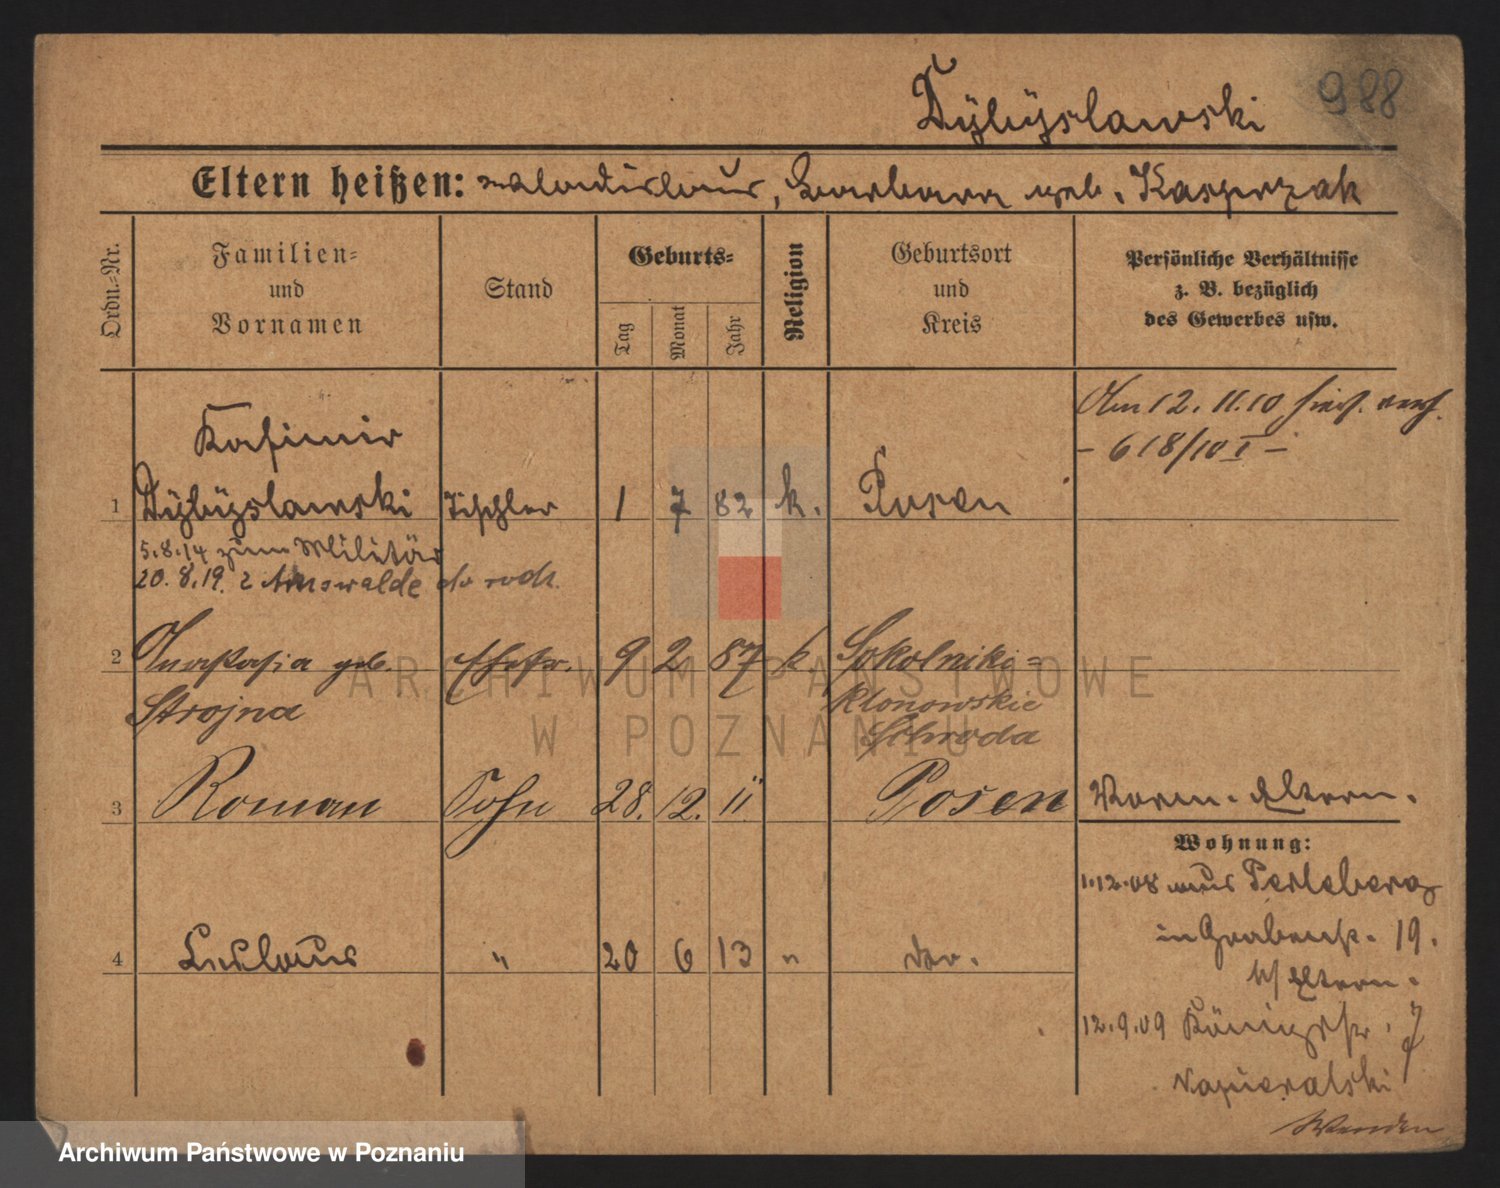 988
Dÿbÿslawski
Eltern heißen: Wladislaus, Barbara geb. Kasprzak
Ordn.-Nr.
Familien-
und
Vornamen
Stand
Geburts-
Tag
Monat
Jahr
Religion
Geburtsort
und
Kreis
Persönliche Verhältnisse
z. B. bezüglich
des Gewerbes usw.
Am 12. 11. 10 hies. verh.
- 618/10 I -
Kasimir
1 Dÿbÿslawski Tischler 1 7 82 k. Posen
5.8.14 zum Militär
20.8.19. Arnswalde
2 Anastasia geb. Ehefr. 9 2 87 k Sokolniki-
Strojna Klonowskie
Schroda
3 Roman Sohn 28. 12. 11 Posen
Eltern.
Wohnung:
1.12.08 aus Perleberg
in Grabenstr. 19.
b/ Eltern.
4 Ladislaus " 20 6 13 " do.
12.9.09 Königstr. 7
Napieralski
Wenden
ARCHIWUM PAŃSTWOWE
W POZNANIU
Archiwum Państwowe w Poznaniu